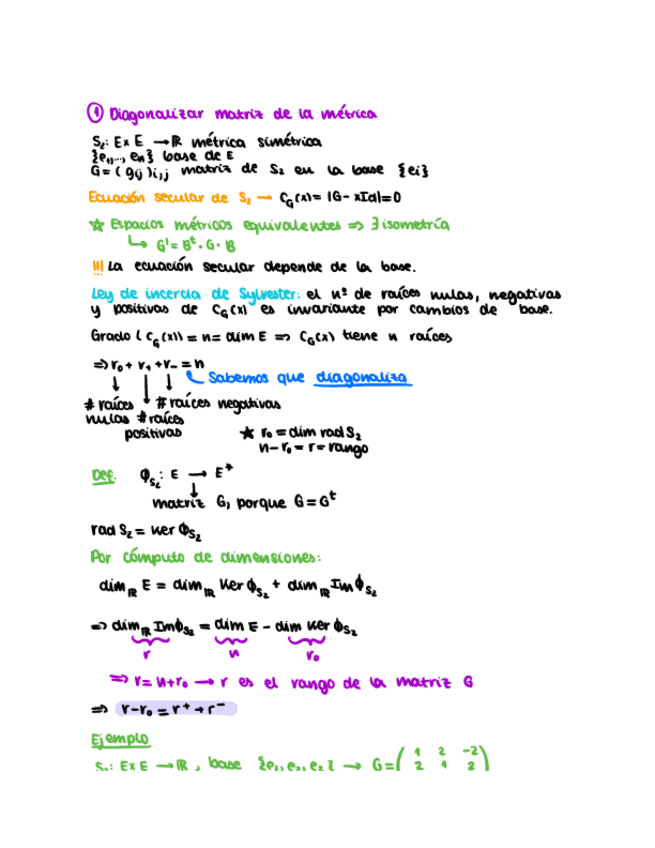 ① Diagonalizar matriz de la métrica
S₂: E x E → ℝ métrica simétrica
{e₁,..., eₙ} base de E
G = (gij)i,j matriz de S₂ en la base {ei}
Ecuación secular de S₂ → C_G(x) = |G - xId| = 0
☆ Espacios métricos equivalentes => ∃ isometría
↳ G' = Bᵗ · G · B
!!! La ecuación secular depende de la base.
Ley de inercia de Sylvester: el nº de raíces nulas, negativas
y positivas de C_G(x) es invariante por cambios de base.
Grado (C_G(x)) = n = dim E => C_G(x) tiene n raíces
=> r₀ + r₊ + r₋ = n
Sabemos que diagonaliza
# raíces # raíces negativas
nulas # raíces
positivas
★ r₀ = dim rad S₂
n - r₀ = r = rango
Def. Φ_S₂ : E → E*
↓
matriz G, porque G = Gᵗ
rad S₂ = Ker Φ_S₂
Por cómputo de dimensiones:
dim_ℝ E = dim_ℝ Ker ϕ_S₂ + dim_ℝ Im ϕ_S₂
=> dim_ℝ Im ϕ_S₂ = dim E - dim Ker ϕ_S₂
r n r₀
=> r = n + r₀ → r es el rango de la matriz G
=> r - r₀ = r⁺ + r⁻
Ejemplo
S₂: E x E → ℝ, base {e₁, e₂, e₃} → G = ( 1 2 -2 )
2 1 2